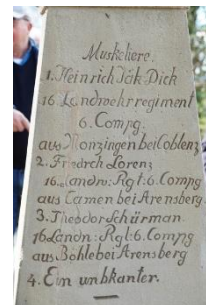 Musketiere.
1. Heinrich Jäk Dick
16 Landwehrregiment
6. Compg.
aus Monzingen bei Coblenz
2. Friedrch Lorenz
16. Landw: Rgt: 6. Compg
aus Camen bei Arensberg.
3. Theodor Schürman.
16 Landn: Rgl: 6. Compg
aus Böhle bei Arensberg
4. Ein unbkanter.